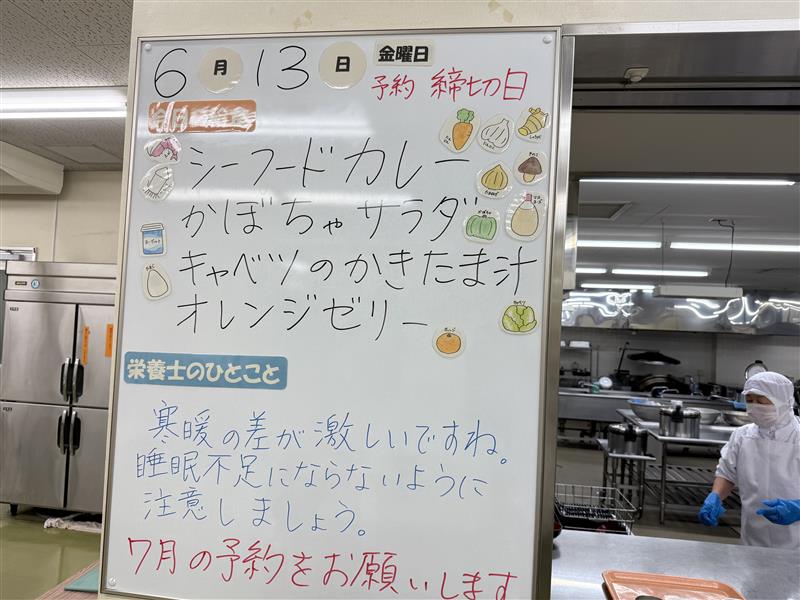 6月13日 金曜日
予約 締切日
シーフードカレー
かぼちゃサラダ
キャベツのかきたま汁
オレンジゼリー
栄養士のひとこと
寒暖の差が激しいですね。
睡眠不足にならないように
注意しましょう。
7月の予約をお願いします